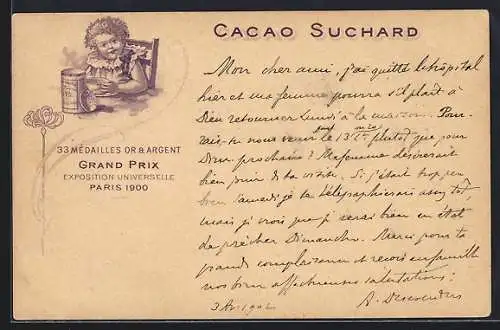 CACAO SUCHARD
33 MÉDAILLES OR & ARGENT
GRAND PRIX
EXPOSITION UNIVERSELLE
PARIS 1900
Mon cher ami, j'ai quitté l'hôpital
hier et ma femme pourra s'il plaît à
Dieu retourner lundi à la maison. Pour-
rais-tu nous venir le 13 plutôt que pour
Dim. prochain? Ma femme désirerait
bien jouir de ta visite. Si c'était trop
bien samedi je te télégraphierais assez tôt,
mais je crois que je serai bien en état
de prêcher Dimanche. Merci pour ta
grande complaisance et reçois en famille
nos bien affectueuses salutations:
3 Av. 1902 A.